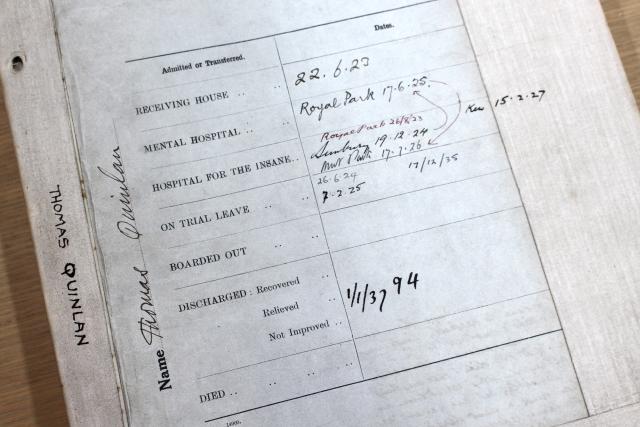 Dates.
Admitted or Transferred.
RECEIVING HOUSE .. .. 22.6.23
MENTAL HOSPITAL .. .. Royal Park 17.6.25.
Kew 15.2.27
HOSPITAL FOR THE INSANE.. Royal Park 26/8/23
Sunbury 19.12.24
Mont Park 17.7.26
ON TRIAL LEAVE .. .. 26.6.24 17/12/35
7.2.25
BOARDED OUT .. ..
DISCHARGED : Recovered
Relieved .. 1/1/37 94
Not Improved ..
DIED .. .. .. ..
Name Thomas Quinlan
THOMAS QUINLAN